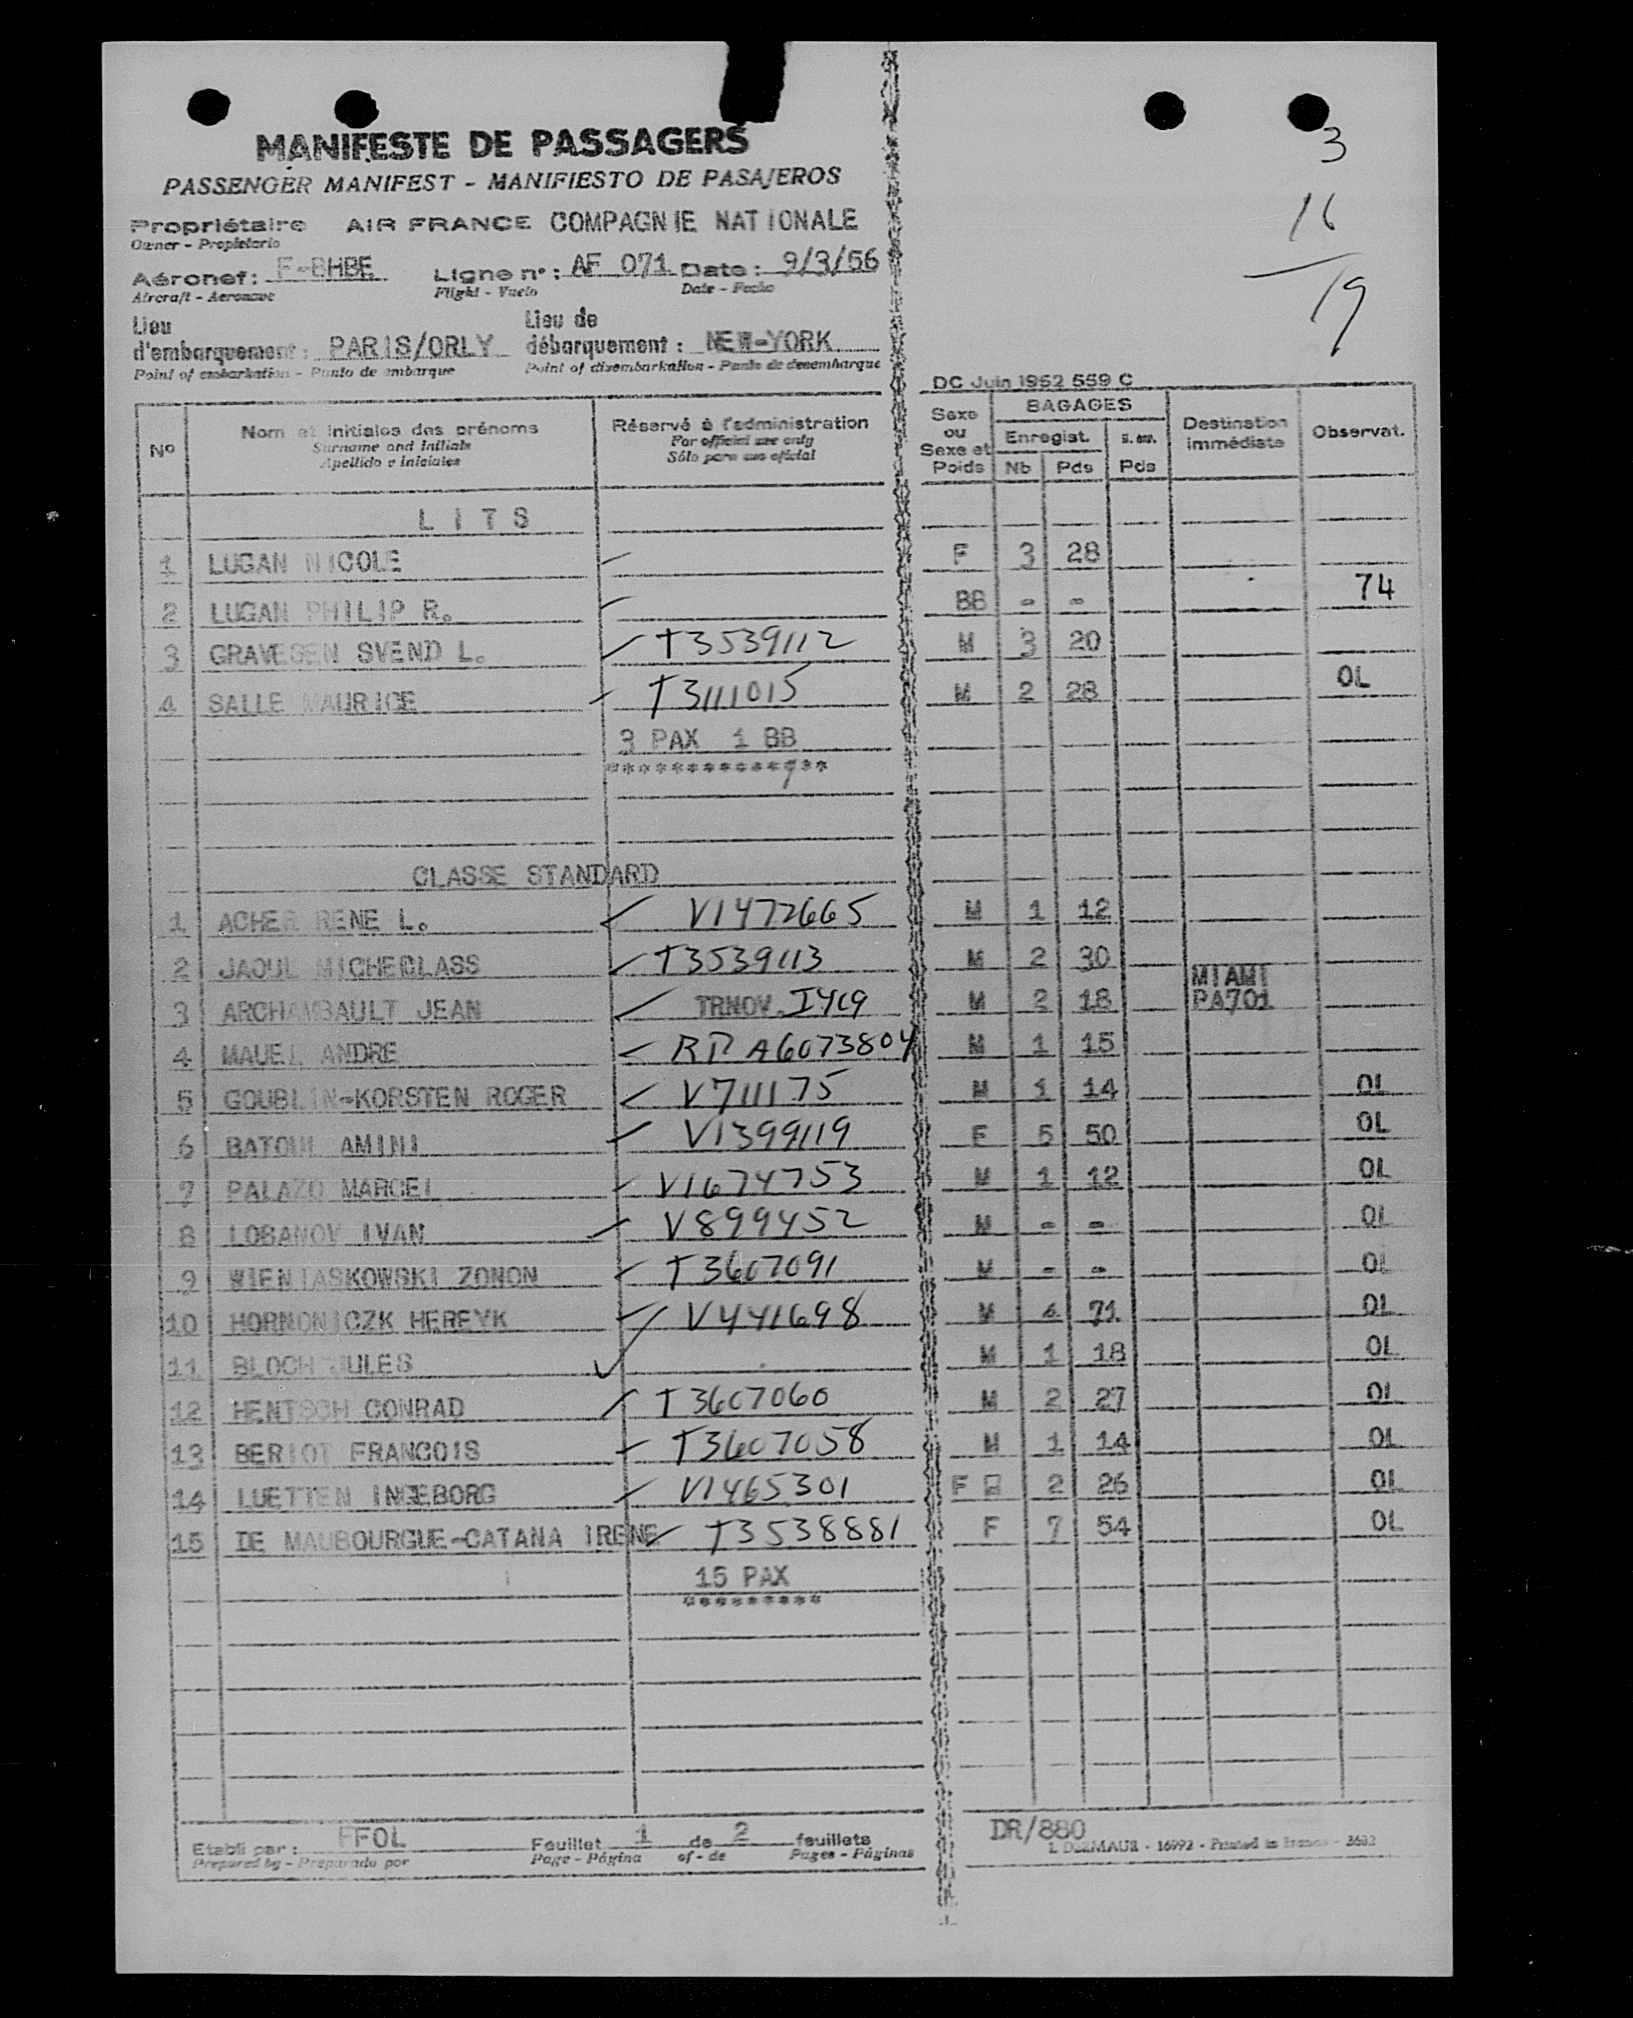 3
16
19
MANIFESTE DE PASSAGERS
PASSENGER MANIFEST - MANIFIESTO DE PASAJEROS
Propriétaire AIR FRANCE COMPAGNIE NATIONALE
Owner - Propietario
Aéronef: F-BHBE Ligne n°: AF 071 Date: 9/3/56
Aircraft - Aeronave Flight - Vuelo Date - Fecha
Lieu d'embarquement: PARIS/ORLY Lieu de débarquement: NEW-YORK
Point of embarkation - Punto de embarque Point of disembarkation - Punto de desembarque
DC Juin 1952 559 C
N° Nom et initiales des prénoms Réservé à l'administration Sexe ou Sexe et Poids BAGAGES Destination immédiate Observat.
Surname and initials For official use only Enregist.
Apellido e iniciales Sólo para uso oficial Nb Pds Pds
LITS
1 LUGAN NICOLE F 3 28
2 LUGAN PHILIP R. BB - - 74
3 GRAVESEN SVEND L. T3539112 M 3 20
4 SALLE MAURICE T3111015 M 2 28 OL
3 PAX 1 BB
*************
CLASSE STANDARD
1 ACHER RENE L. V1472665 M 1 12
2 JAOUL MICHEDLASS T3539113 M 2 30
3 ARCHAMBAULT JEAN TRNOV. I419 M 2 18 MIAMI PA701
4 MAUEL ANDRE A6073804 M 1 15
5 GOUBLIN-KORSTEN ROGER V711175 M 1 14 OL
6 BATOUL AMINI V1399119 F 5 50 OL
7 PALAZO MARCEL V1674753 M 1 12 OL
8 LOBANOV IVAN V899452 M - - OL
9 WIENIASKOWSKI ZONON T3607091 M - - OL
10 HORNONICZK HEREYK V441698 M 4 71 OL
11 BLOCH JULES M 1 18 OL
12 HENTSCH CONRAD T3607060 M 2 27 OL
13 BERIOT FRANCOIS T3607058 M 1 14 OL
14 LUETTEN INGEBORG V1465301 F 2 26 OL
15 DE MAUBOURGUE-CATANA IRENE T3538881 F 7 54 OL
15 PAX
*********
Etabli par: FFOL Feuillet 1 de 2 feuillets DR/880
Prepared by - Preparado por Page - Página of - de Pages - Páginas Printed in France